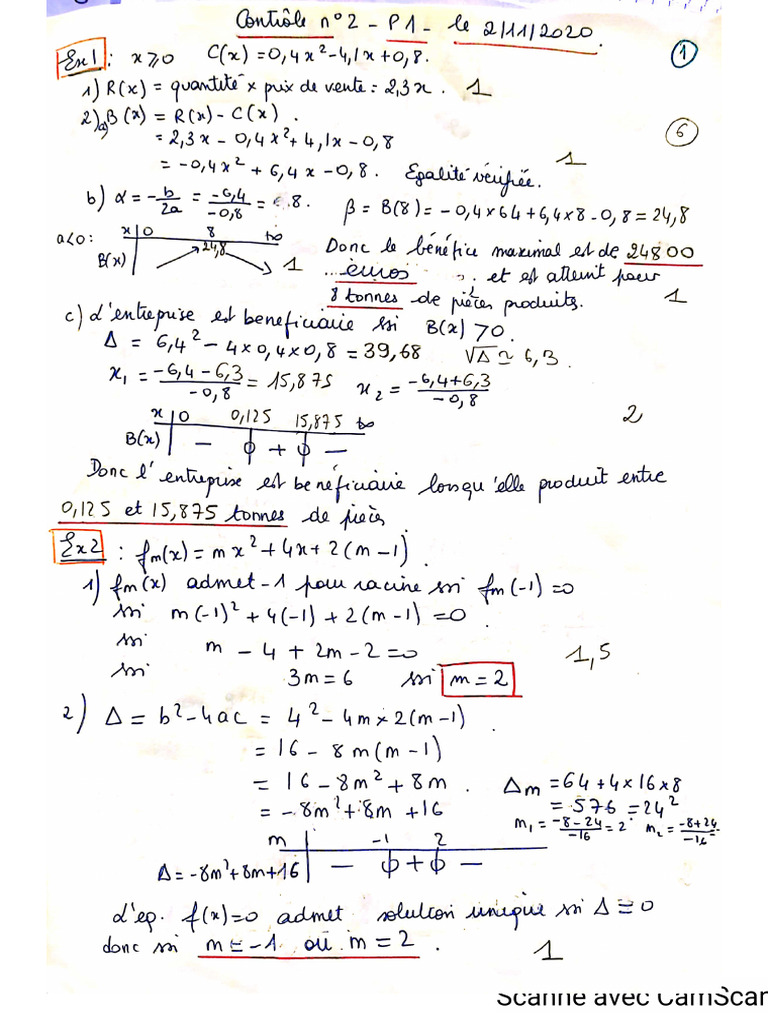 Contrôle n°2 - P1 - le 2/11/2020.
Ex1 : x ⩾ 0 C(x) = 0,4x² - 4,1x + 0,8. 1
1) R(x) = quantité × prix de vente = 2,3x. 1
2)a) B(x) = R(x) - C(x). 6
= 2,3x - 0,4x² + 4,1x - 0,8
= -0,4x² + 6,4x - 0,8. Egalité vérifiée. 1
b) α = -b/2a = -6,4/-0,8 = 8. β = B(8) = -0,4×64 + 6,4×8 - 0,8 = 24,8
a<0 : x | 0 8 +∞
B(x) 24,8 1
Donc le bénéfice maximal est de 24800
euros et est atteint pour
8 tonnes de pièces produits. 1
c) L'entreprise est beneficiaire ssi B(x) > 0.
Δ = 6,4² - 4×0,4×0,8 = 39,68 √Δ ≃ 6,3.
x₁ = -6,4-6,3/-0,8 = 15,875 x₂ = -6,4+6,3/-0,8
x | 0 0,125 15,875 +∞ 2
B(x) | - ϕ + ϕ -
Donc l'entreprise est bénéficiaire lorsqu'elle produit entre
0,125 et 15,875 tonnes de pièces
Ex2 : fm(x) = mx² + 4x + 2(m-1).
1) fm(x) admet -1 pour racine ssi fm(-1) = 0
ssi m(-1)² + 4(-1) + 2(m-1) = 0.
ssi m - 4 + 2m - 2 = 0 1,5
ssi 3m = 6 ssi m = 2
2) Δ = b² - 4ac = 4² - 4m × 2(m-1).
= 16 - 8m(m-1)
= 16 - 8m² + 8m. Δm = 64 + 4×16×8
= -8m² + 8m + 16 = 576 = 24²
m₁ = -8-24/-16 = 2 m₂ = -8+24/-16 =
m | -1 2
Δ = -8m² + 8m + 16 | - ϕ + ϕ -
L'eq. f(x) = 0 admet solution unique ssi Δ = 0
donc ssi m = -1 ou m = 2. 1
Scanné avec CamScan